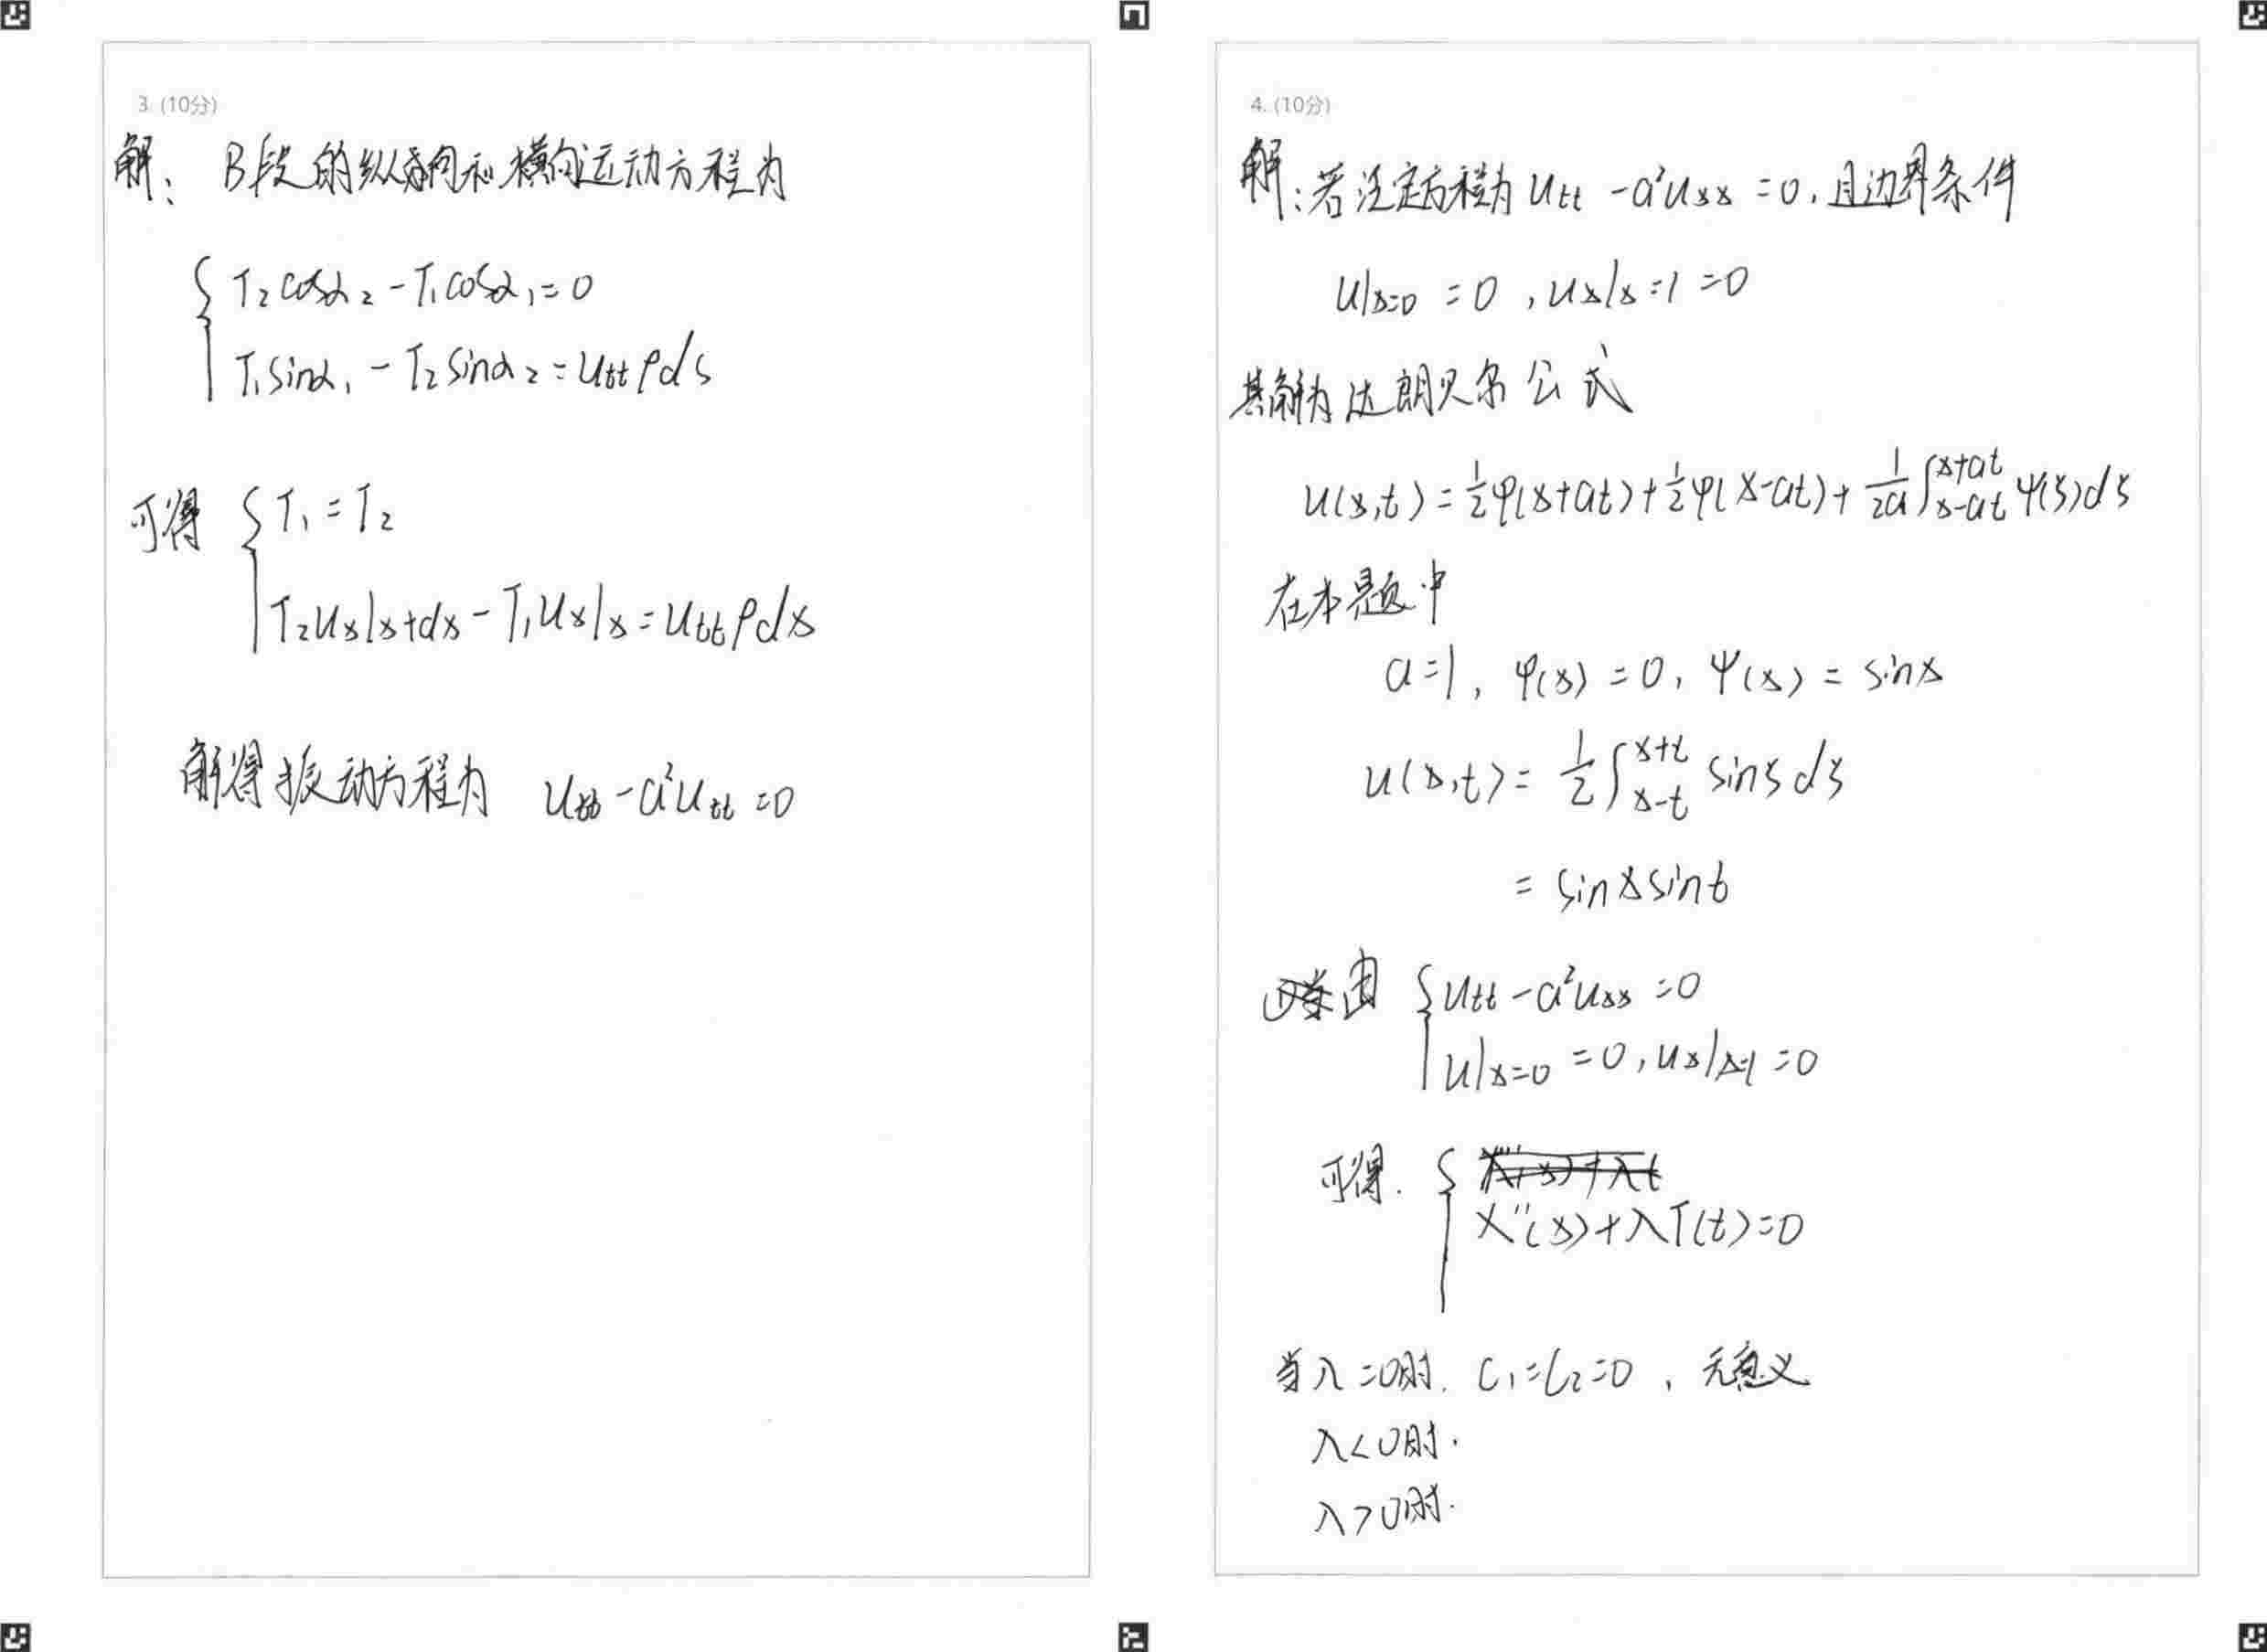 3. (10分)
解: B段的纵向和横向运动方程为
T₂cosα₂ - T₁cosα₁ = 0
T₁sinα₁ - T₂sinα₂ = uttρds
可得 T₁ = T₂
T₂ux|x+dx - T₁ux|x = uttρdx
解得振动方程为 utt - a²utt = 0
4. (10分)
解: 若泛定方程为 utt - a²uxx = 0, 且边界条件
u|x=0 = 0, ux|x=1 = 0
其解为达朗贝尔公式
u(x,t) = 1/2 φ(x+at) + 1/2 φ(x-at) + 1/2a ∫x-at^x+at ψ(ξ)dξ
在本题中
a=1, φ(x) = 0, ψ(x) = sinx
u(x,t) = 1/2 ∫x-t^x+t sinξdξ
= sinxsint
由 utt - a²uxx = 0
u|x=0 = 0, ux|x=1 = 0
可得.
X''(x)+λT(t)=0
当λ=0时. C₁=C₂=0, 无意义
λ<0时.
λ>0时.